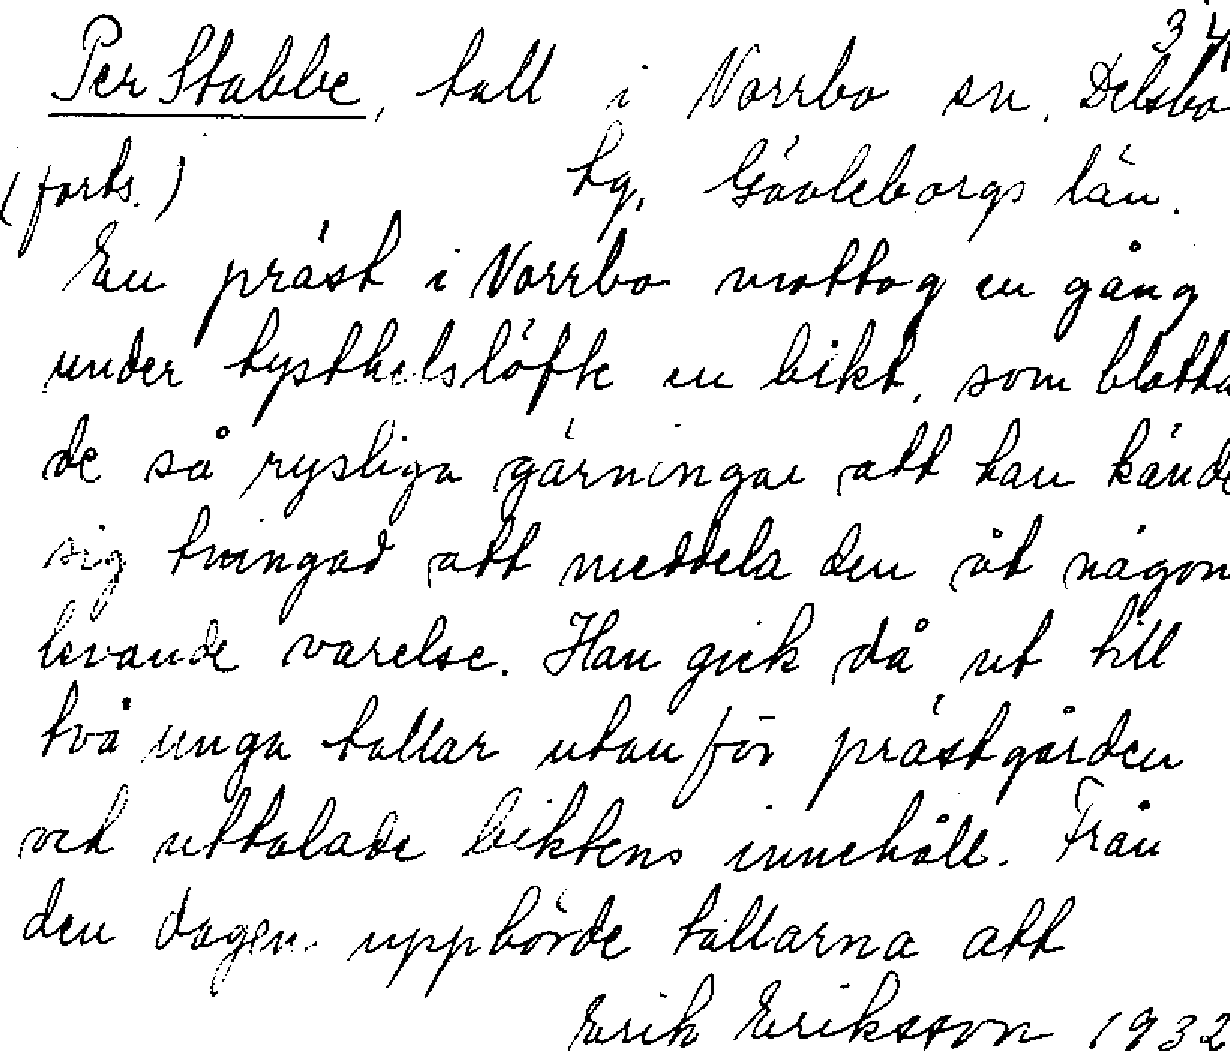 34
Per Stabbe, tall i Norrbo sn. Delsbo
(forts.) tg, Gävleborgs län.
En präst i Norrbo mottog en gång
under tysthetslöfte en bikt, som blotta
de så rysliga gärningar att han kände
sig tvingad att meddela den åt någon
levande varelse. Han gick då ut till
två unga tallar utanför prästgården
och uttalade biktens innehåll. Från
den dagen upphörde tallarna att
Erik Eriksson 1932